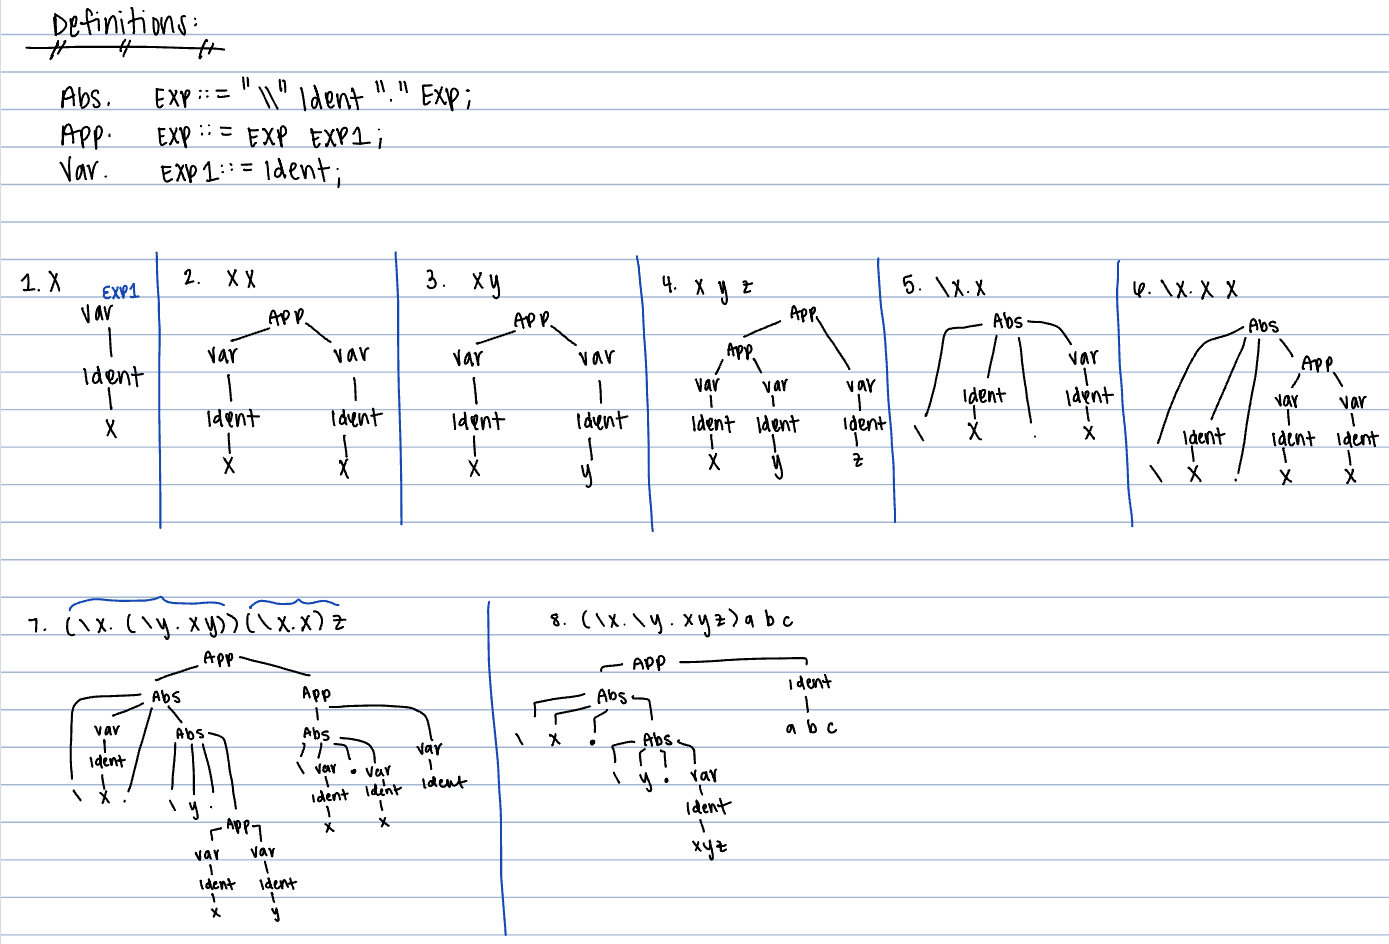 Definitions:
Abs. EXP ::= "\\" Ident "." Exp;
App. EXP ::= EXP EXP1;
Var. EXP1 ::= Ident;
1. X
EXP1
Var
Ident
X
2. X X
App
Var Var
Ident Ident
X X
3. X y
App
Var Var
Ident Ident
X y
4. X y z
App
App
Var Var Var
Ident Ident Ident
X y z
5. \X.X
Abs
Var
Ident Ident
\ X . X
6. \X. X X
Abs
App
Var Var
Ident Ident Ident
\ X . X X
7. (\X. (\y. xy)) (\X.X) z
App
Abs App
Var Abs Abs Var
Ident \ Var . Var Ident
\ X . \ y . Ident Ident
App X X
Var Var
Ident Ident
X y
8. (\X. \y. xyz) a b c
APP
Ident
Abs
a b c
\ X . Abs
\ y . Var
Ident
xyz